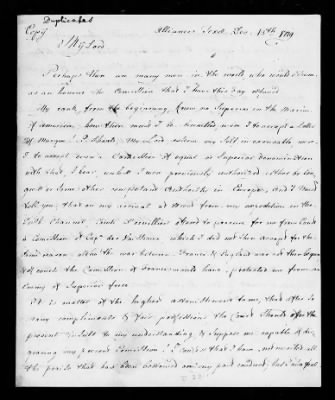 Duplicates
Copy Alliance Texel Dec. 13th 1779
My Lord
Perhaps there are many men in the world who would esteem
as an honour the Commission that I have this day refused
My rank from the beginning knew no Superior in the Marine
of America; how then must I be humbled were I to accept a Letter
of Marque! I should, My Lord, esteem my self inexcusable were
I to accept even a Commission of equal or Superior denomination
with that I bear, unless I were previously authorised either by Con-
gress or some other competent Authority in Europe. And I must
tell you that on my arrival at Brest from my expedition in the
Irish Channel Count D'orvilliers offered to procure for me from Court
a Commission of Capt. de Vaisseau which I did not then accept for the
same reason altho' the war between France & England was not then begun
& of course the Commission of France would have protected me from an
Enemy of Superior force
It is matter of the highest astonishment to me, that after so
many compliments & fair professions the Court Should offer the
present insult to my understanding & suppose me capable of dis-
gracing my present Commission! I confess that I have not merited all
the praise that has been bestowed on my past conduct; but I also feel